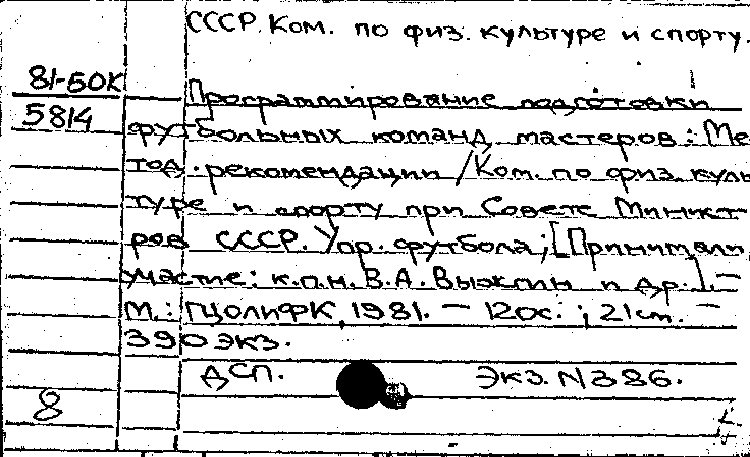 СССР. Ком. по физ. культуре и спорту.
81-50К
5814
Программирование подготовки
футбольных команд мастеров: Ме
тод. рекомендации / Ком. по физ. куль
туре и спорту при Совете Минист
ров СССР. Упр. футбола; [Принимали
участие: к.п.н. В.А. и др.]. —
М.: ГЦОЛИФК, 1981. — 120с.; 21см. —
390 экз.
ДСП. Экз. N 386.
8